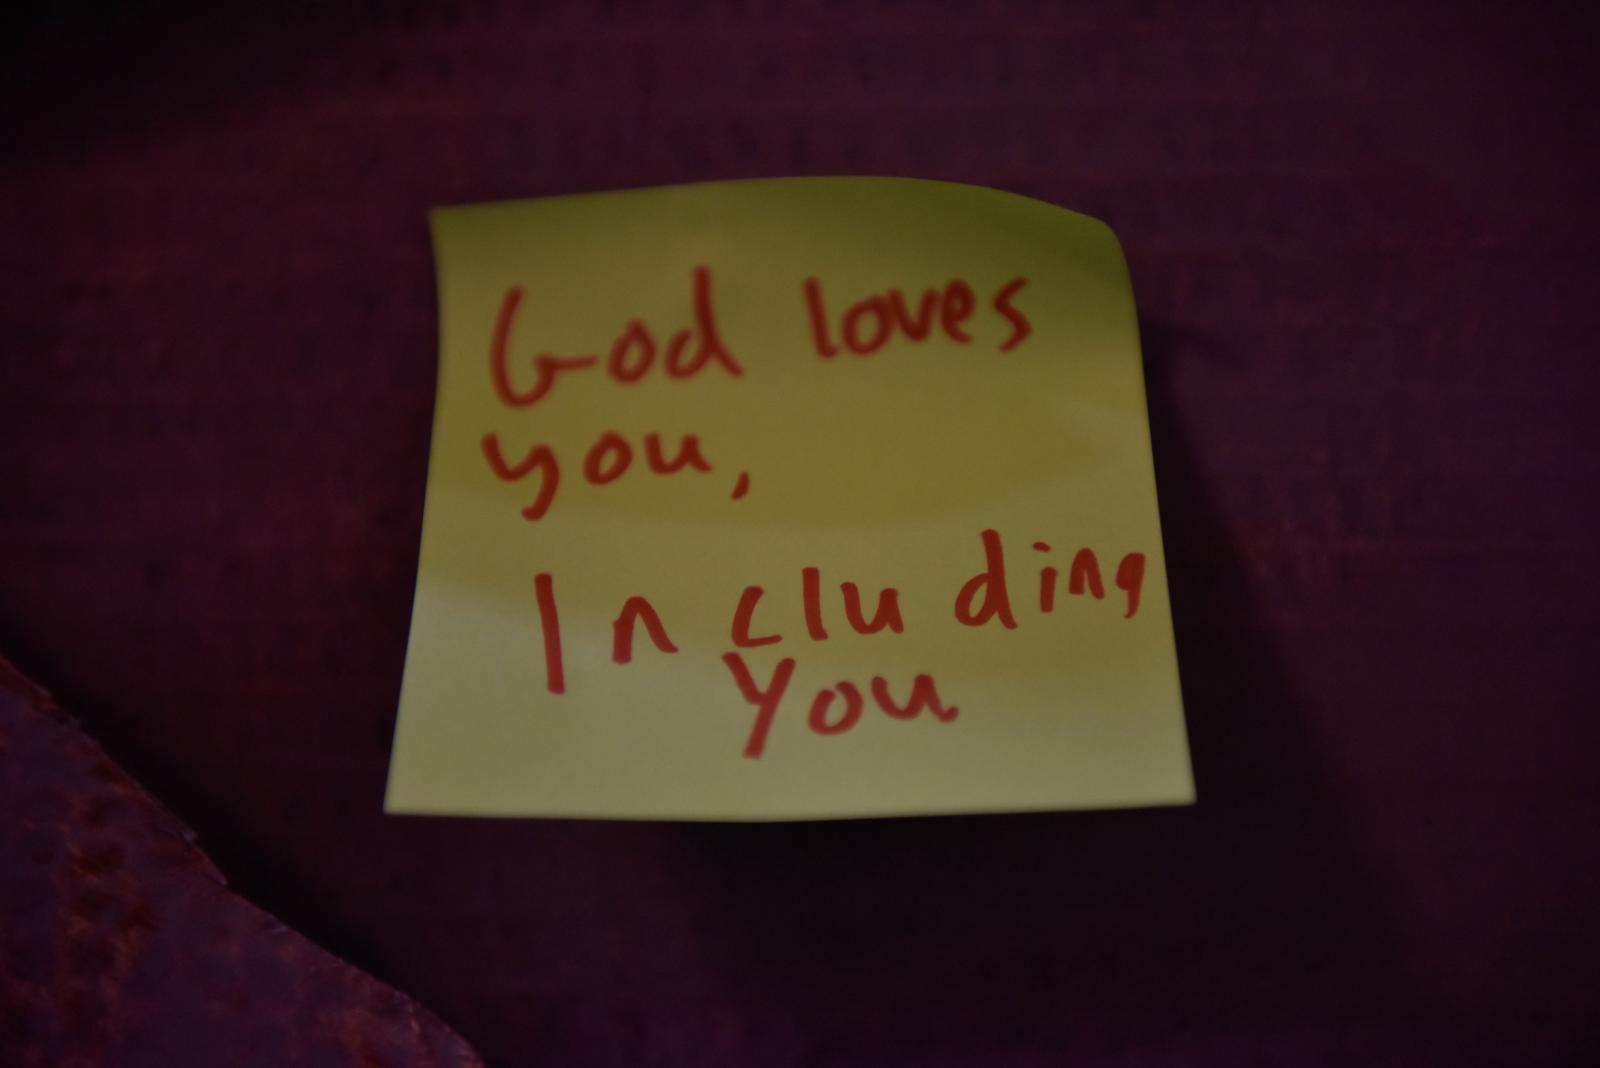 God loves
you,
Including
You